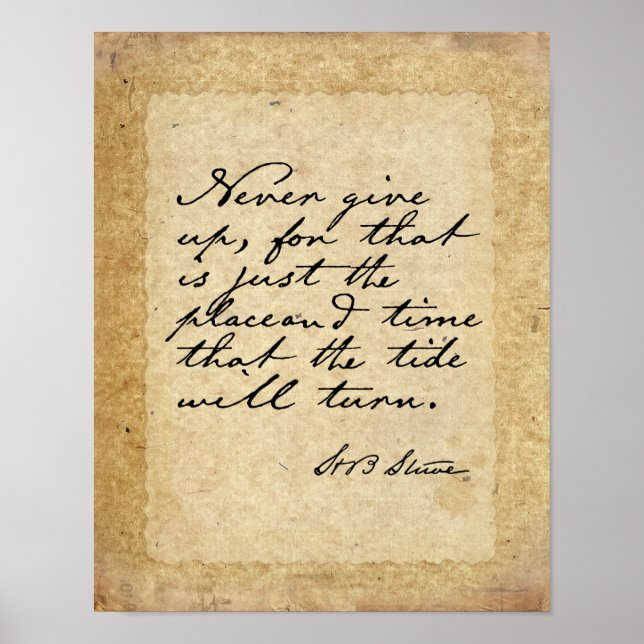 Never give
up, for that
is just the
placeand time
that the tide
will turn.
HB Stowe